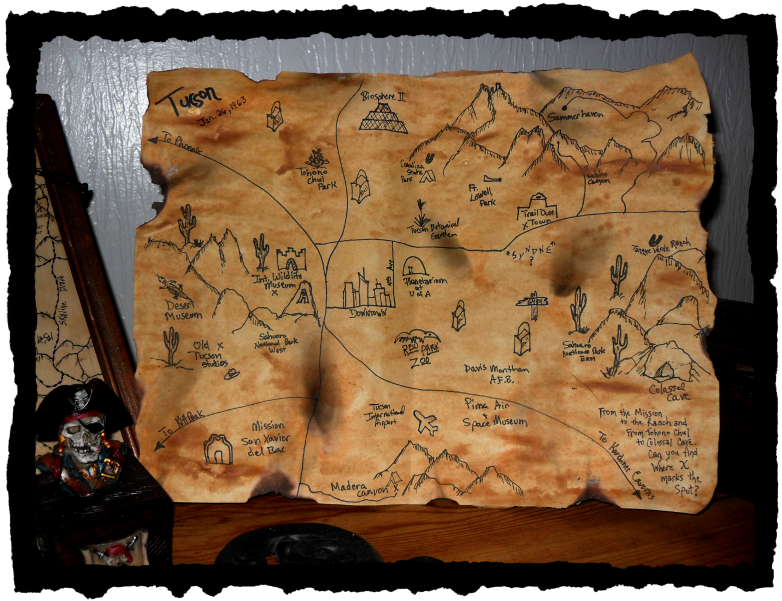 Tucson
Jan. 26, 1963
To Phoenix
Biosphere II
Summerhaven
Tohono
Chul
Park
Catalina
State
Park
Ft.
Lowell
Park
Canyon
Trail Dust
x Town
Tucson Botanical
Garden
"SyNDNE"
?
Tanque Verde Ranch
Int. Wildlife
Museum
X
Planetarium
at
U of A
Downtown
Desert
Museum
Saguaro
National Park
West
Old x
Tucson
Studios
Reid Park
Zoo
Davis Monthan
A.F.B.
Saguaro
National Park
East
Colossel
Cave
To Kitt Peak
Mission
San Xavier
del Bac
Tucson
International
Airport
Pima Air
&
Space Museum
To Kardner Caverns
Madera
Canyon X
From the Mission
to the Ranch and
From Tohono Chul
to Colossal Cave.
Can you find
Where X
marks the
Spot?